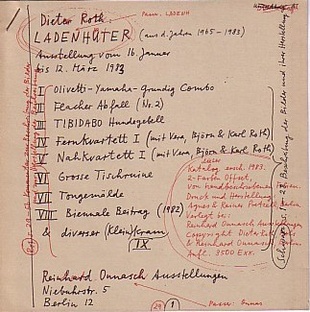 Dieter Roth
LADENHÜTER (aus d. Jahren 1965-1983)
Ausstellung vom 16. Januar
bis 12. März 1983
I Olivetti-Yamaha-Grundig Combo
II Flacher Abfall (Nr. 2)
III TIBIDABO Hundegebell
IV Fernkvartett I (mit Vera, Björn & Karl Roth)
V Nahkvartett I (mit Vera, Björn & Karl Roth)
VI Grosse Tischruine
VII Tongemälde
VIII Biennale Beitrag (1982)
& diverser (Klein)kram
IX
Reinhard Onnasch Ausstellungen
Niebuhrstr. 5
Berlin 12
Katalog ersch. 1983.
2-Farben Offset,
Druck und Herstellung
verlegt bei:
Reinhard Onnasch Ausstellungen
Copyright Dieter Roth
& Reinhard Onnasch
Aufl. 3500 Exx.
1